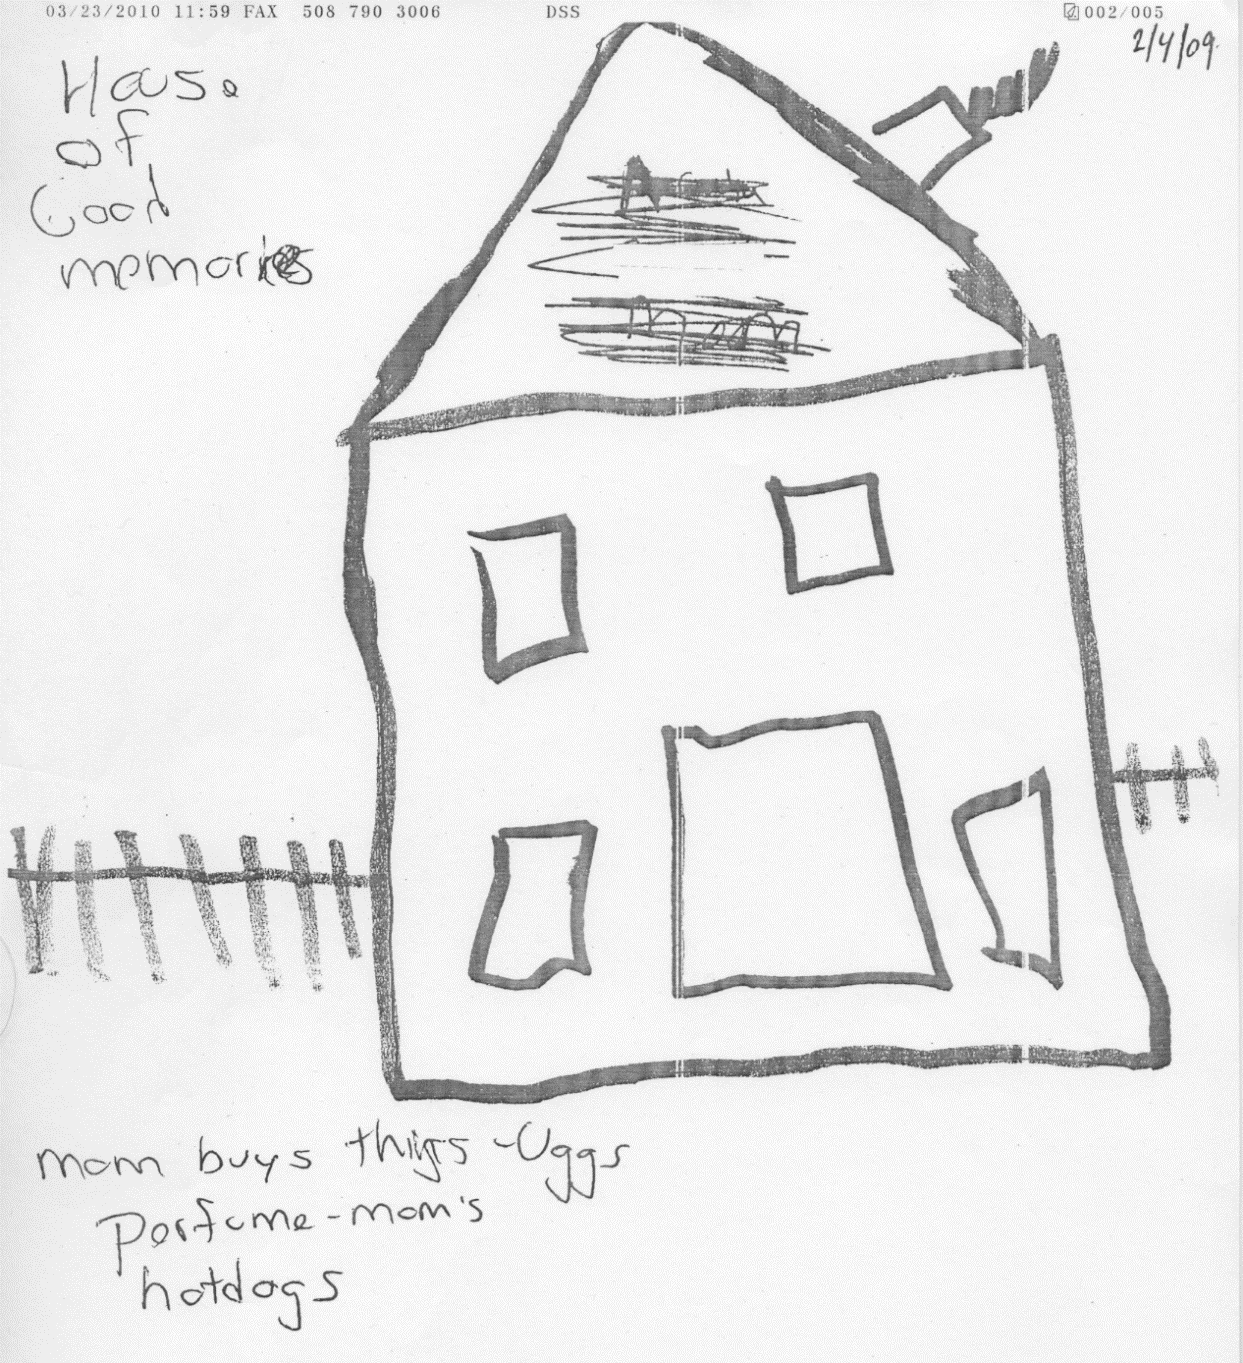 03/23/2010 11:59 FAX 508 790 3006 DSS 002/005
2/4/09
House
of
Good
memories
mom
mom buys things - Uggs
perfume - mom's
hotdogs